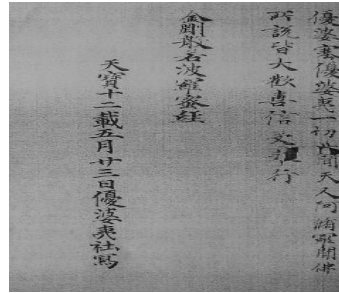 優婆塞優婆夷一切世間天人阿脩羅聞佛
所說皆大歡喜信受奉行
金剛般若波羅蜜經
天寶十二載五月廿三日優婆夷社寫